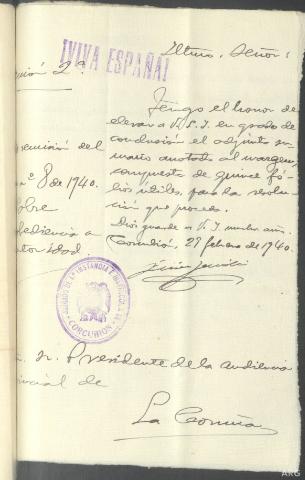 ¡VIVA ESPAÑA!
Iltmo. Señor:
ción 2ª.
Tengo el honor de
elevar a V.S.I. en grado de
conclusión el adjunto su-
mario anotado al margen,
compuesto de quince fó-
lios útiles, para la resolu-
ción que proceda.
Dios guarde a V.I. muchos años.
Corcubión, 27 febrero de 1940.
nº 8 de 1940.
Sobre
bediencia a
utoridad
JUZGADO DE 1ª INSTANCIA E INSTRUCCIÓN
CORCUBIÓN
Sr. Presidente de la Audiencia
vincial de
La Coruña
ARG